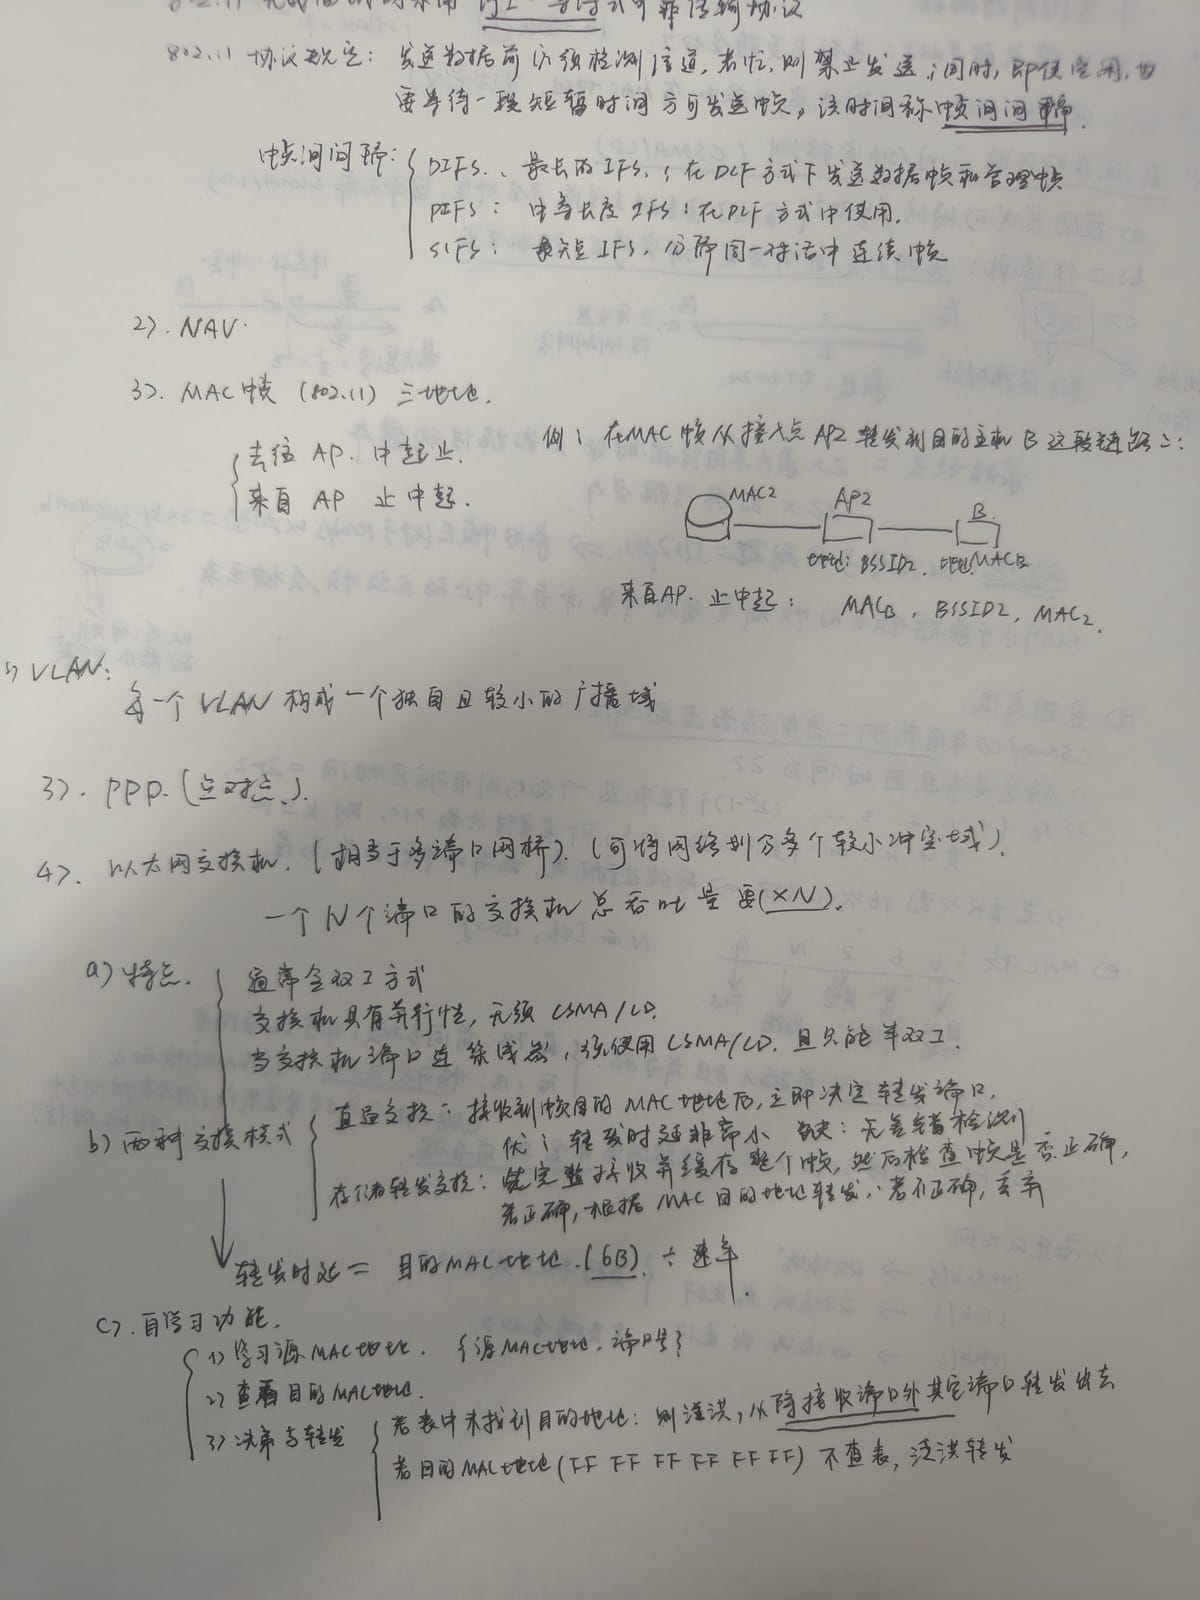 802.11 无线局域网采用 停止-等待 可靠传输协议
802.11 协议规定: 发送数据前 必须检测信道, 若忙, 则禁止发送; 同时, 即使空闲, 也
要等待一段短暂时间 方可发送帧, 该时间称帧间间隔.
帧间间隔:
DIFS: 最长的IFS; 在DCF方式下发送数据帧和管理帧
PIFS: 中等长度IFS; 在PCF方式中使用.
SIFS: 最短IFS, 分隔同一对话中连续帧
2). NAV.
3). MAC帧 (802.11) 三地址.
去往 AP. 中起止.
来自 AP 止中起.
例: 在MAC帧从接入点AP2转发到目的主机B这段链路上:
MAC2 AP2 B.
地址: BSSID2. 地址MACB
来自AP. 止中起: MACB, BSSID2, MAC2.
VLAN:
每一个VLAN构成一个独自且较小的广播域
3). PPP. (点对点).
4). 以太网交换机. (相当于多端口网桥). (可将网络划分多个较小冲突域).
一个N个端口的交换机总吞吐量要(×N).
a) 特点.
通常全双工方式
交换机具有并行性, 无须CSMA/CD.
当交换机端口连集线器, 须使用CSMA/CD. 且只能半双工.
b) 两种交换模式
直通交换: 接收到帧目的MAC地址后, 立即决定转发端口,
优: 转发时延非常小 缺: 无差错检测
存储转发交换: 先完整接收并缓存整个帧, 然后检查帧是否正确,
若正确, 根据MAC目的地址转发; 若不正确, 丢弃
转发时延 = 目的MAC地址.(6B) ÷ 速率.
c). 自学习功能.
1) 学习源MAC地址. {源MAC地址. 端口号}
2) 查看目的MAC地址.
3) 决策与转发
若表中未找到目的地址: 则泛洪, 从除接收端口外其它端口转发出去
若目的MAC地址 (FF FF FF FF FF FF) 不查表, 泛洪转发